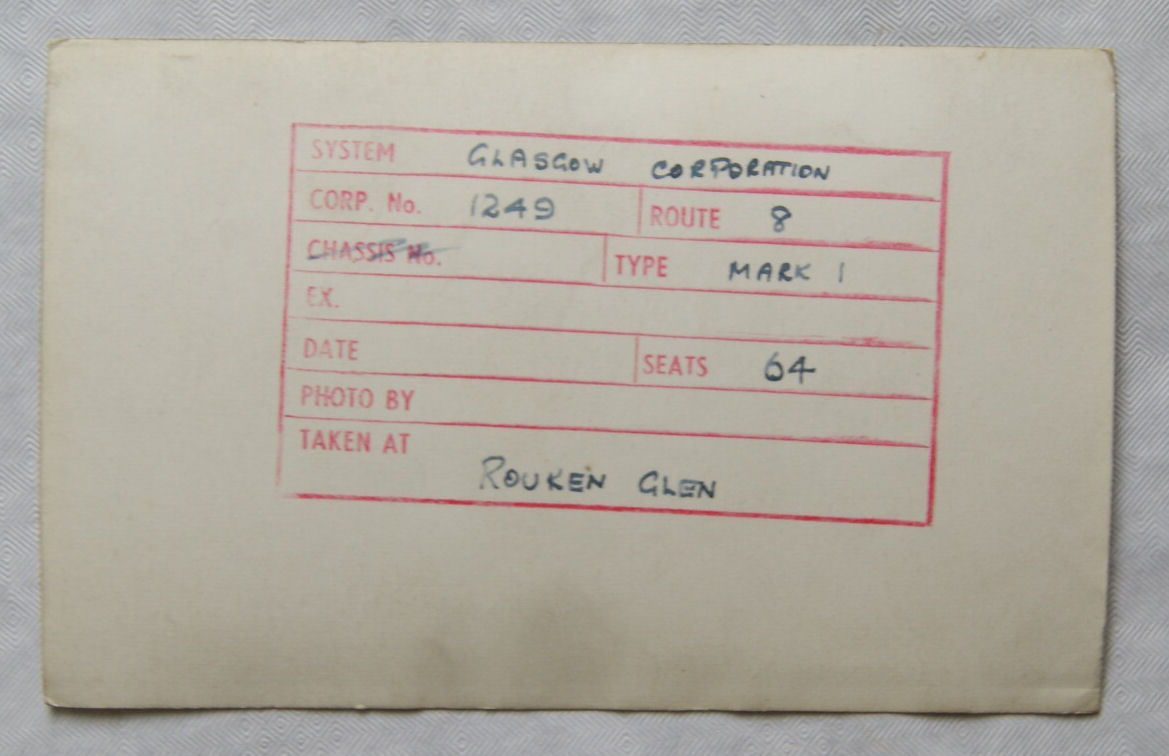 SYSTEM GLASGOW CORPORATION
CORP. No. 1249 ROUTE 8
CHASSIS No. TYPE MARK 1
EX.
DATE SEATS 64
PHOTO BY
TAKEN AT
ROUKEN GLEN